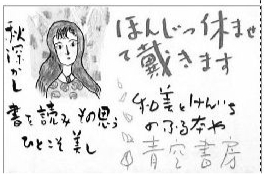 ほんじつ休ませ
て戴きます
秋深かし
書を読み その思う
ひとこそ美し
和美とけんいち
のふる本や
青空書房